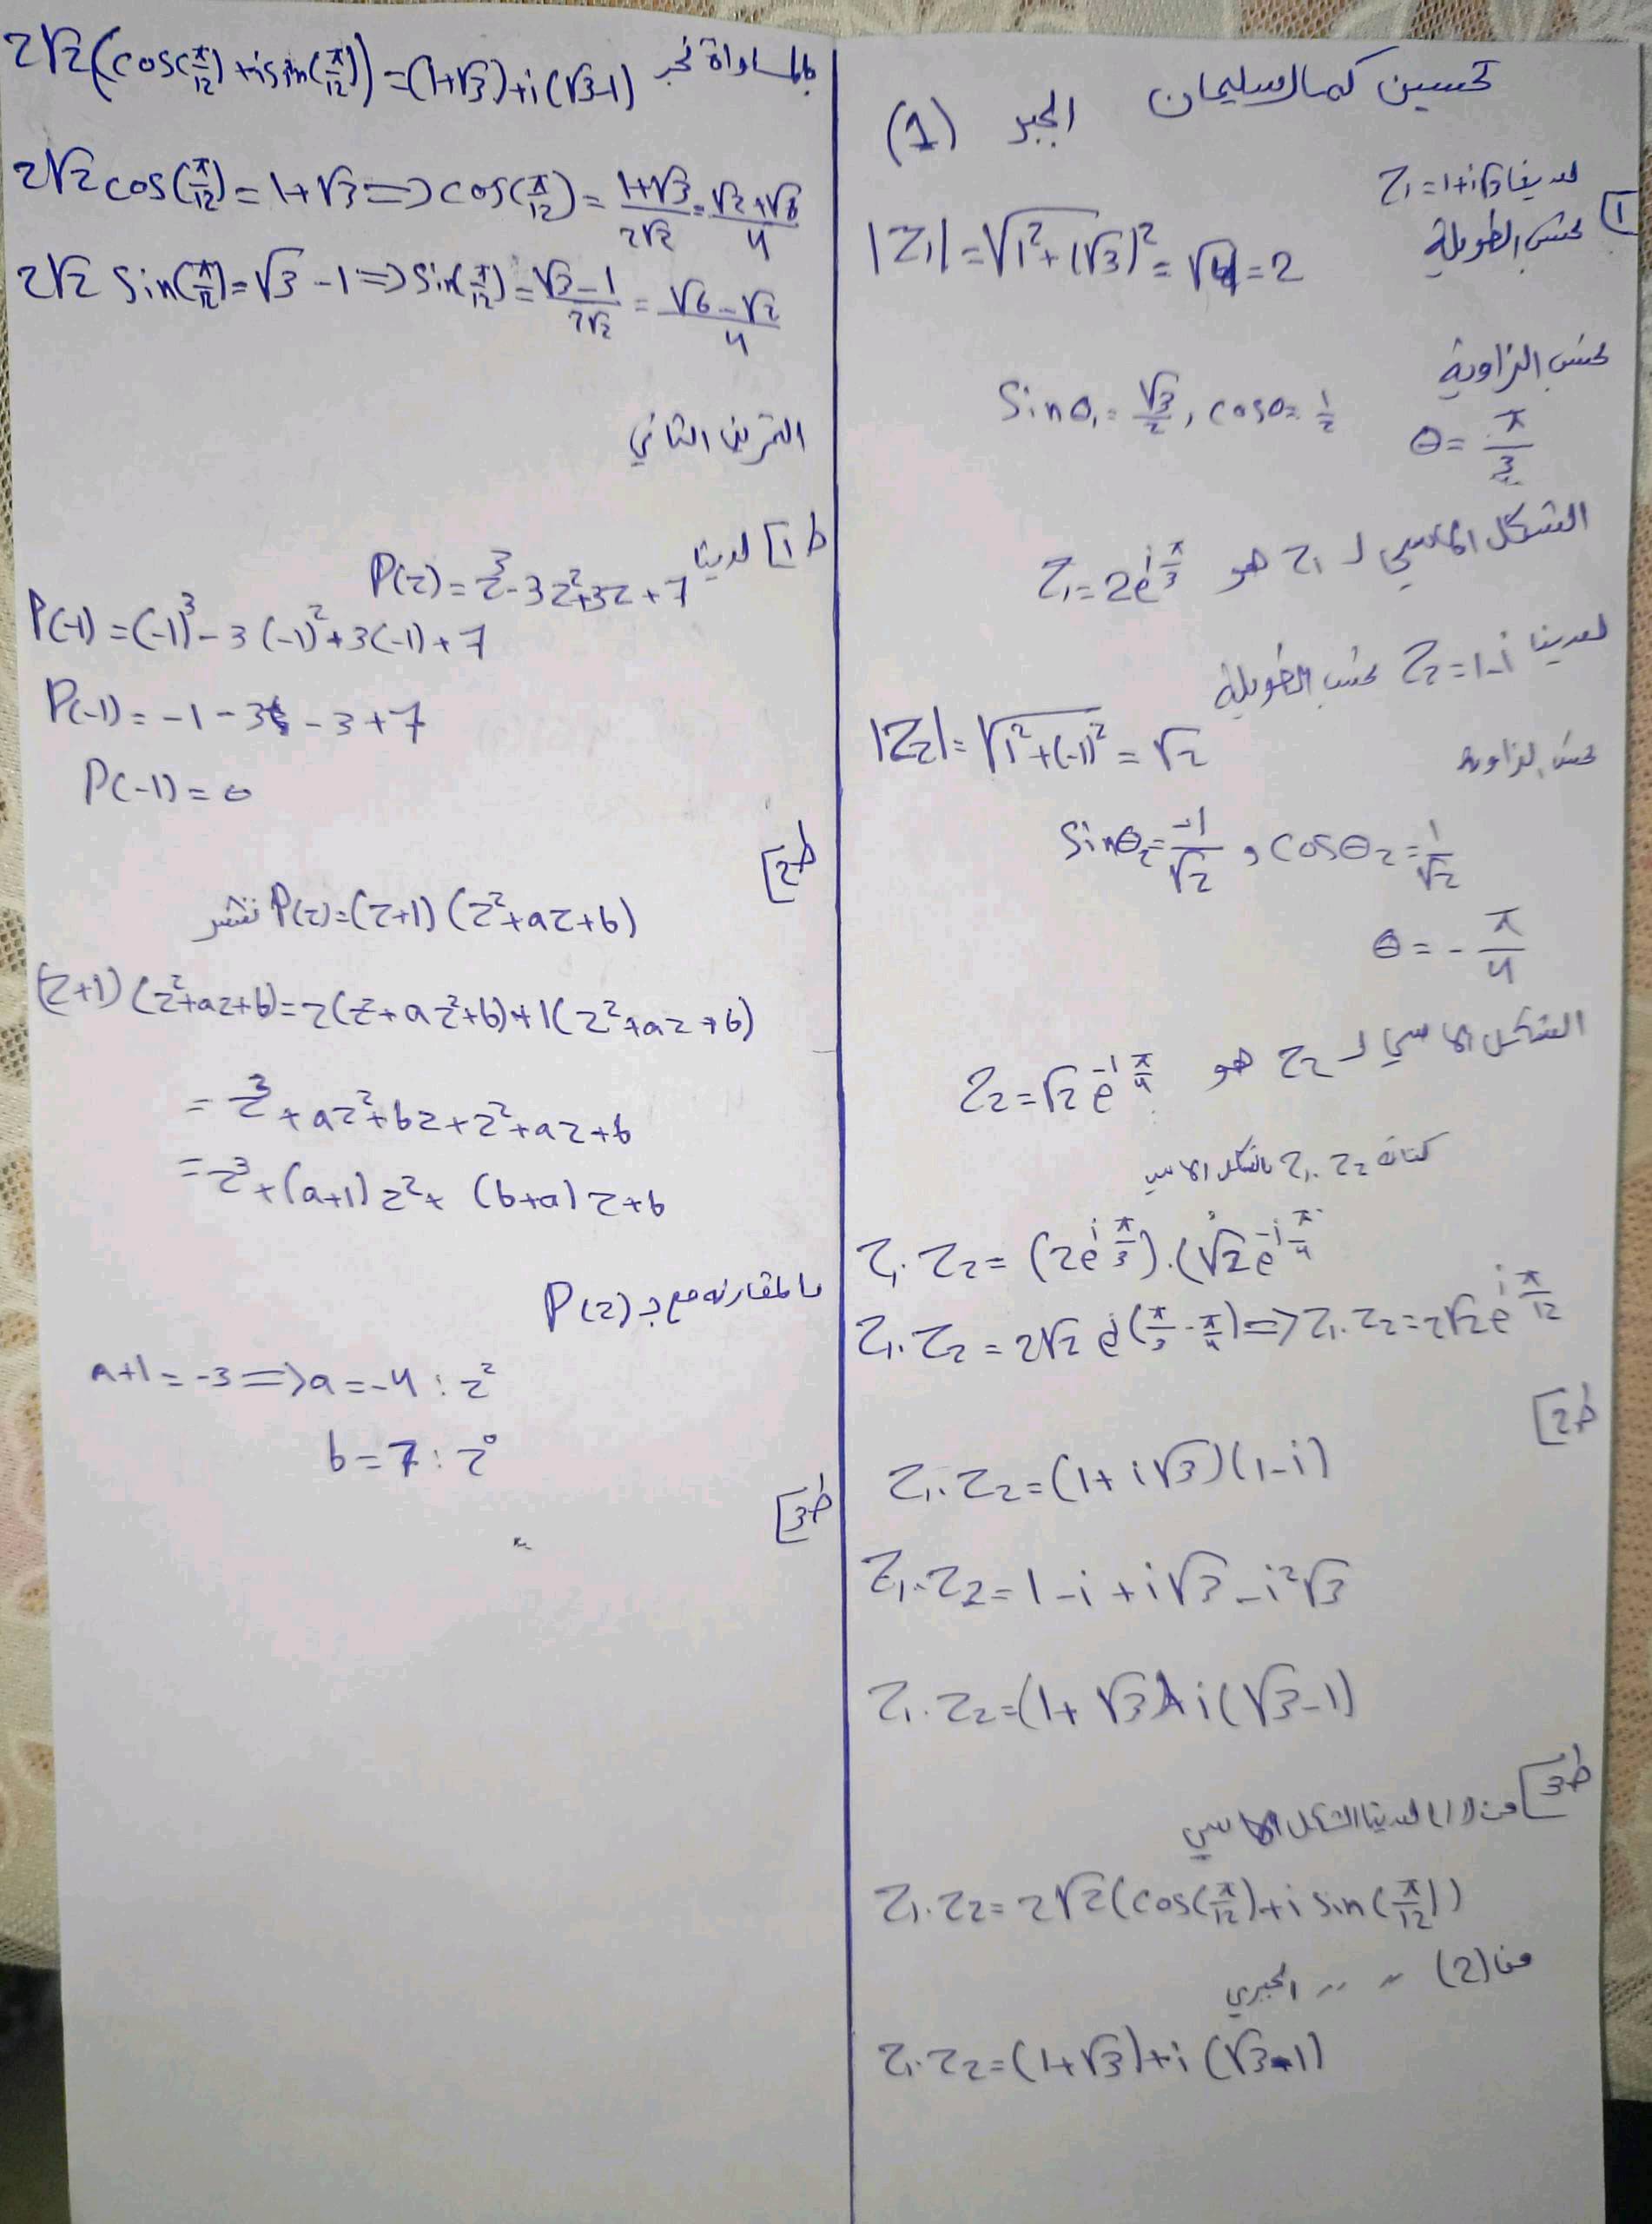 تحسين كمال سليمان الجبر (1)
1] لدينا Z₁ = 1+i√3
نحسب الطويلة
|Z₁| = √(1² + (√3)²) = √4 = 2
نحسب الزاوية
Sinθ₁ = √3/2 , cosθ = 1/2
θ = π/3
الشكل الأسي لـ Z₁ هو Z₁ = 2e^(i π/3)
لدينا Z₂ = 1-i نحسب الطويلة
|Z₂| = √(1² + (-1)²) = √2
نحسب الزاوية
Sinθ₂ = -1/√2 , cosθ₂ = 1/√2
θ = - π/4
الشكل الأسي لـ Z₂ هو Z₂ = √2 e^(-i π/4)
كتابة Z₁.Z₂ بالشكل الاسي
Z₁.Z₂ = (2e^(i π/3)).(√2e^(-i π/4)
Z₁.Z₂ = 2√2 e^(i(π/3 - π/4)) => Z₁.Z₂ = 2√2e^(i π/12)
ط2]
Z₁.Z₂ = (1+i√3)(1-i)
Z₁.Z₂ = 1-i+i√3-i²√3
Z₁.Z₂ = (1+√3)+i(√3-1)
ط3] من (1) لدينا الشكل الأسي
Z₁.Z₂ = 2√2(cos(π/12)+i sin(π/12))
من (2) 〃 〃 الجبري
Z₁.Z₂ = (1+√3)+i(√3-1)
بالمساواة نجد
2√2(cos(π/12)+isin(π/12)) = (1+√3)+i(√3-1)
2√2 cos(π/12) = 1+√3 => cos(π/12) = (1+√3)/(2√2) = (√2+√6)/4
2√2 Sin(π/12) = √3-1 => Sin(π/12) = (√3-1)/(2√2) = (√6-√2)/4
التمرين الثاني
ط1] لدينا P(z) = z³-3z²+3z+7
P(-1) = (-1)³-3(-1)²+3(-1)+7
P(-1) = -1-3-3+7
P(-1) = 0
ط2]
P(z) = (z+1)(z²+az+b) ننشر
(z+1)(z²+az+b) = z(z²+az²+b)+1(z²+az+b)
= z³+az²+bz+z²+az+b
= z³+(a+1)z²+(b+a)z+b
بالمقارنة مع P(z)
a+1 = -3 => a = -4 : z²
b = 7 : z⁰
ط3]